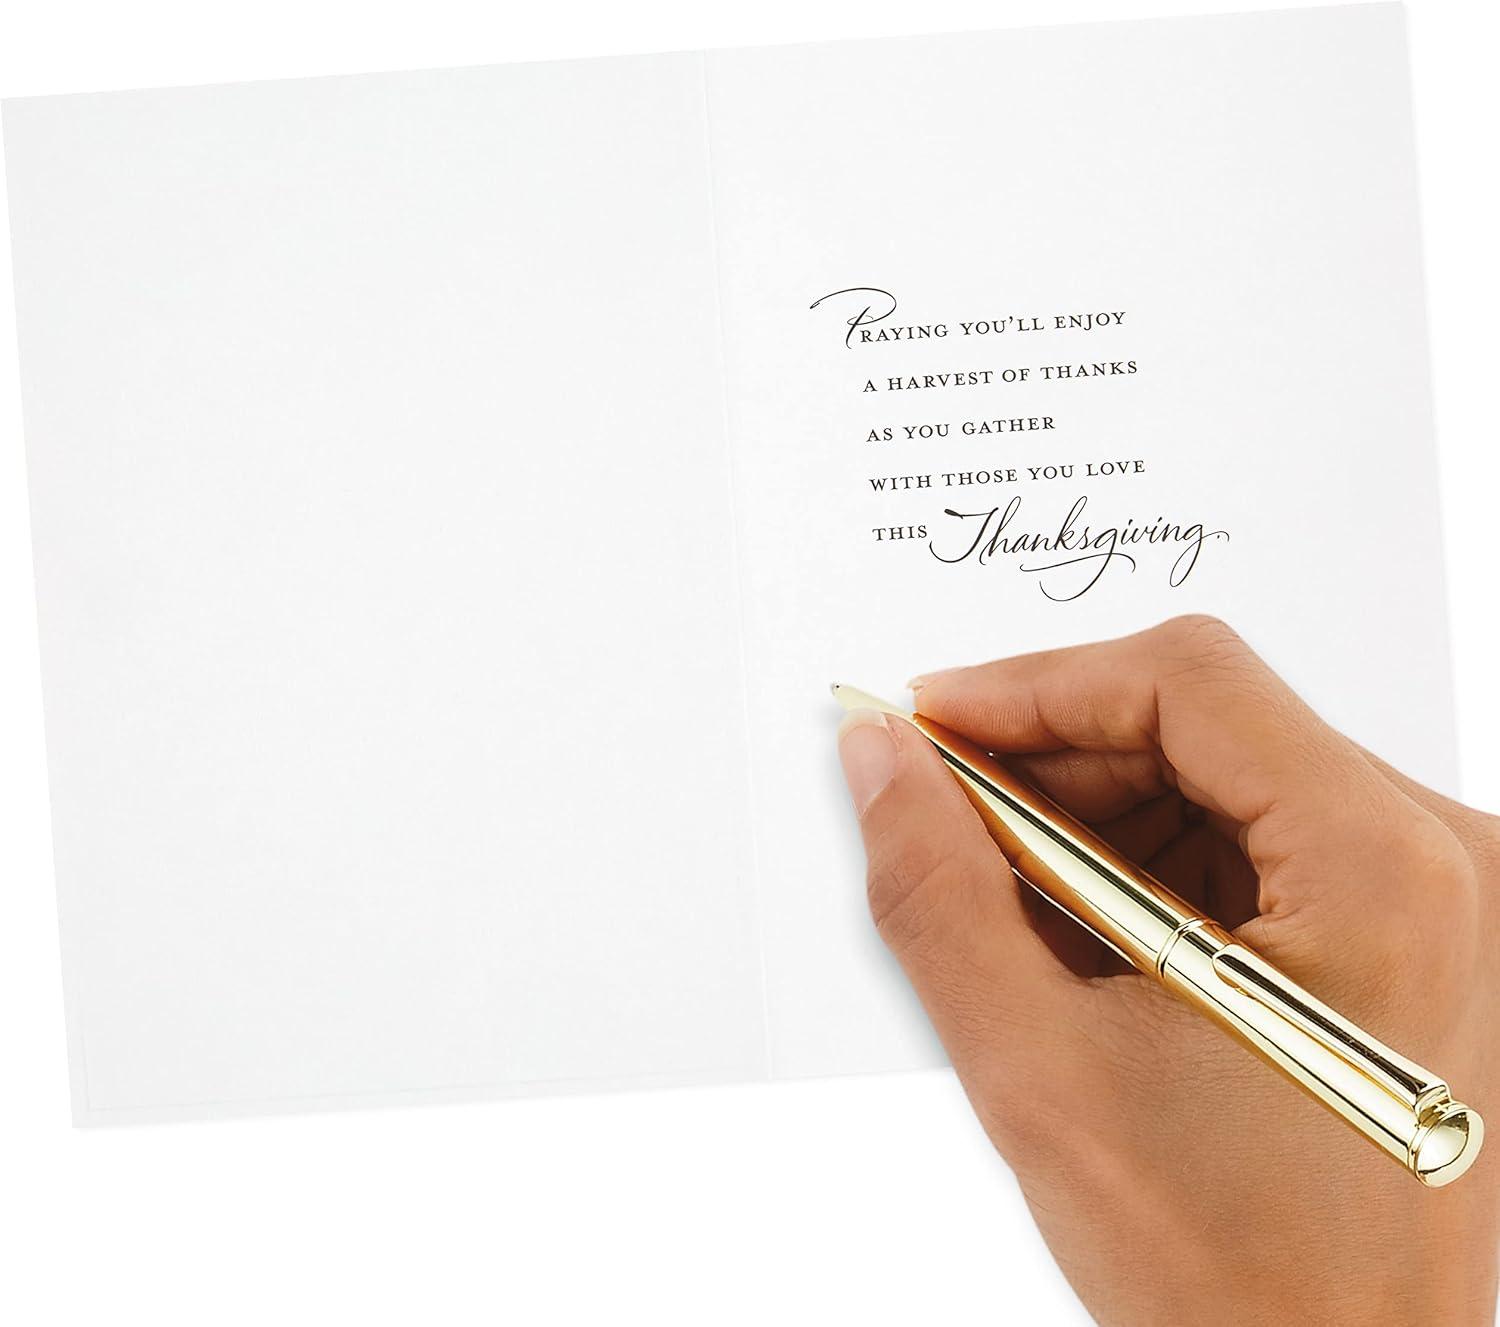 PRAYING YOU'LL ENJOY
A HARVEST OF THANKS
AS YOU GATHER
WITH THOSE YOU LOVE
THIS Thanksgiving.